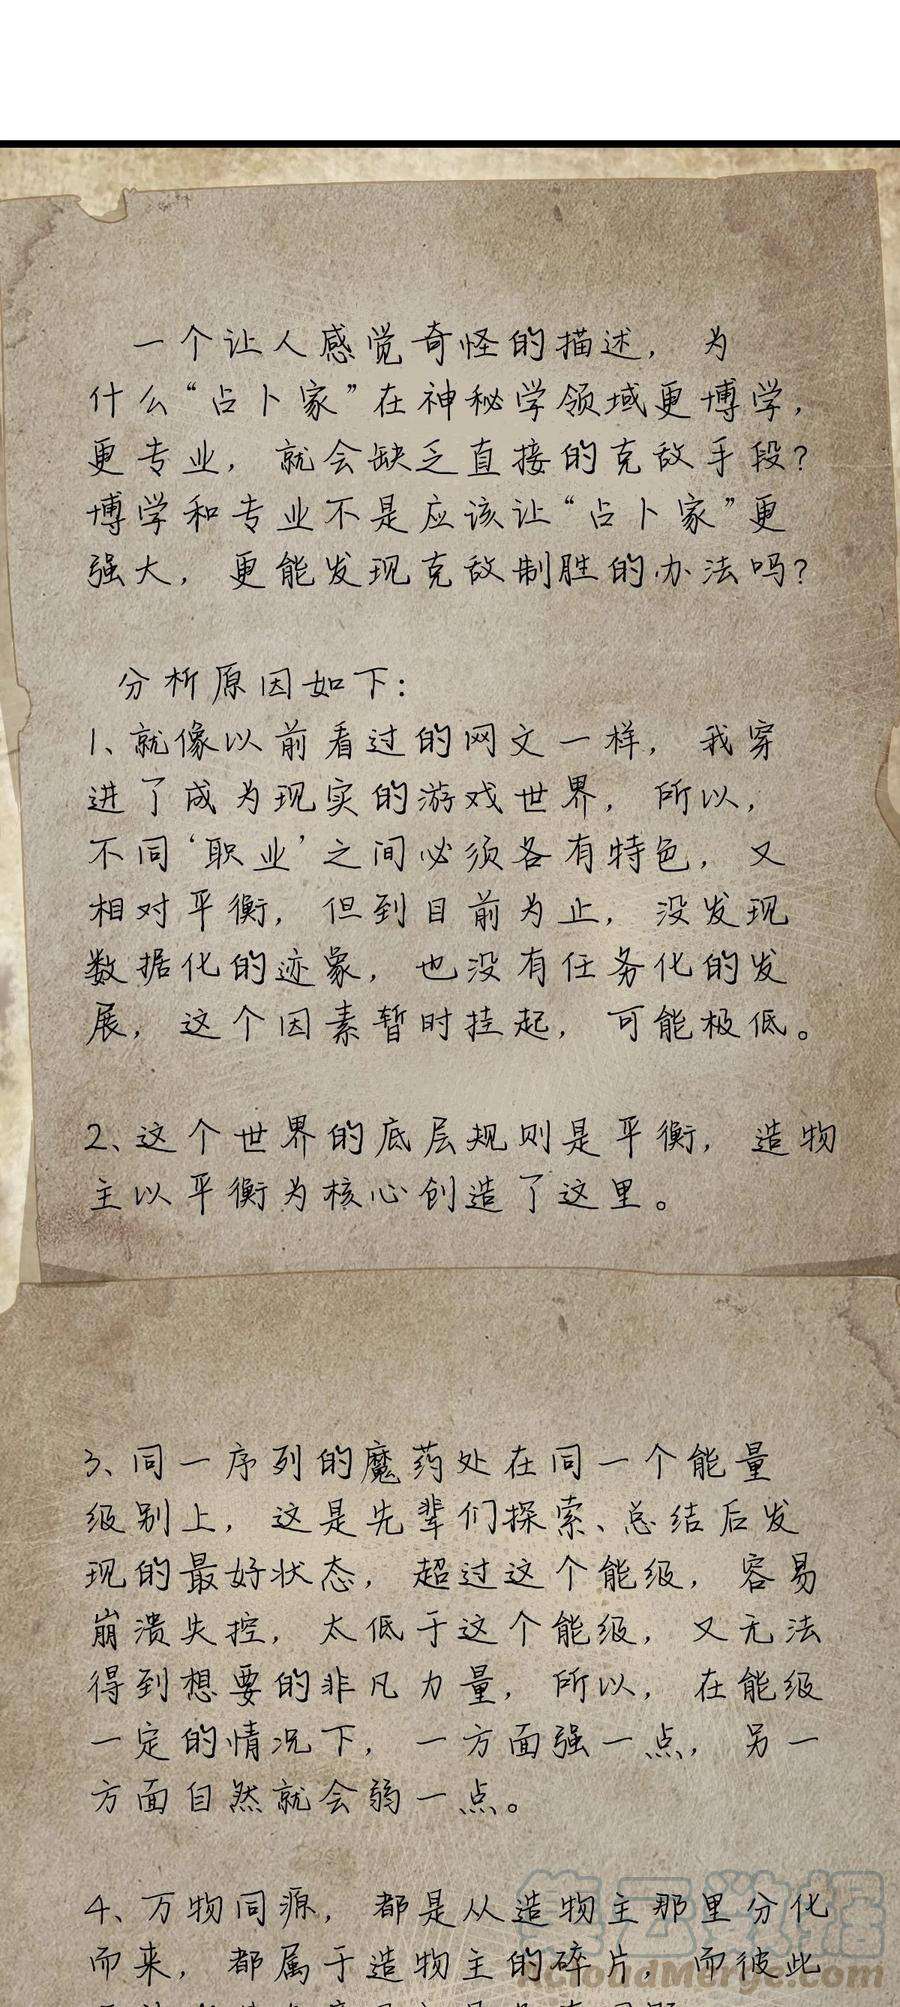 一个让人感觉奇怪的描述，为
什么“占卜家”在神秘学领域更博学，
更专业，就会缺乏直接的克敌手段？
博学和专业不是应该让“占卜家”更
强大，更能发现克敌制胜的办法吗？
分析原因如下：
1、就像以前看过的网文一样，我穿
进了成为现实的游戏世界，所以，
不同‘职业’之间必须各有特色，又
相对平衡，但到目前为止，没发现
数据化的迹象，也没有任务化的发
展，这个因素暂时挂起，可能极低。
2、这个世界的底层规则是平衡，造物
主以平衡为核心创造了这里。
3、同一序列的魔药处在同一个能量
级别上，这是先辈们探索、总结后发
现的最好状态，超过这个能级，容易
崩溃失控，太低于这个能级，又无法
得到想要的非凡力量，所以，在能级
一定的情况下，一方面强一点，另一
方面自然就会弱一点。
4、万物同源，都是从造物主那里分化
而来，都属于造物主的碎片，而彼此
集云数据